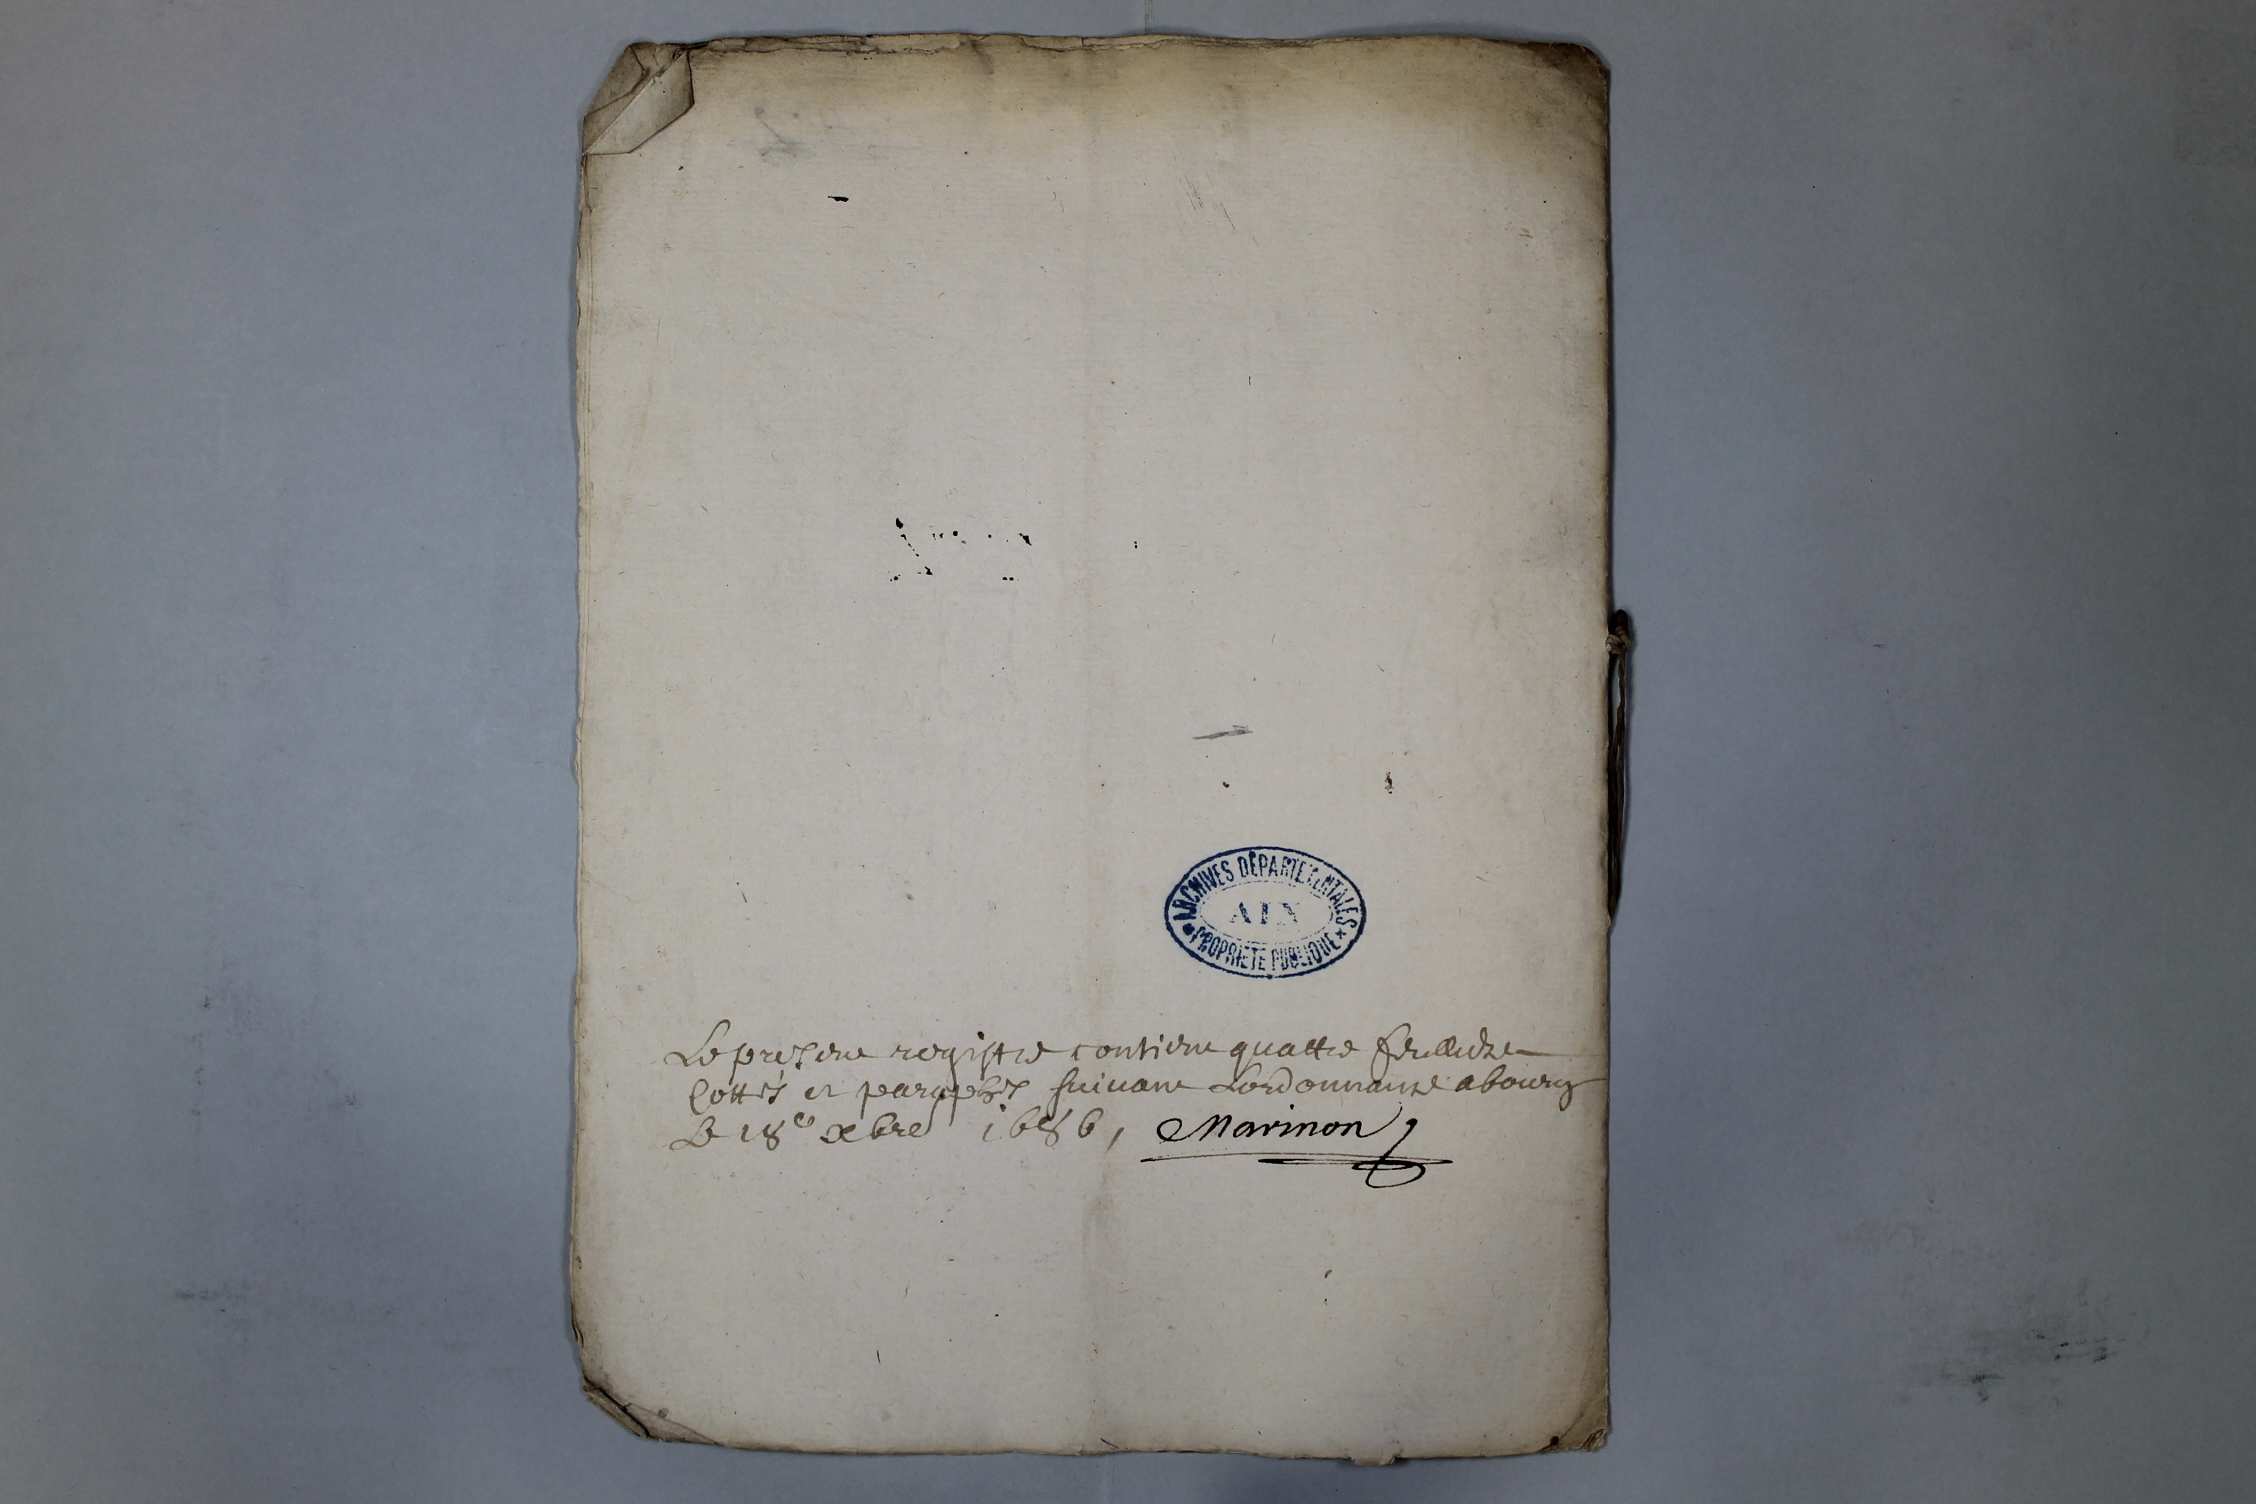 ARCHIVES DÉPARTEMENTALES
AIN
PROPRIÉTÉ PUBLIQUE
Le present registre contient quattre feullietz
Cottés et paraphés suivant Lordonnance a bourg
Le 18e xbre 1686, Marinon